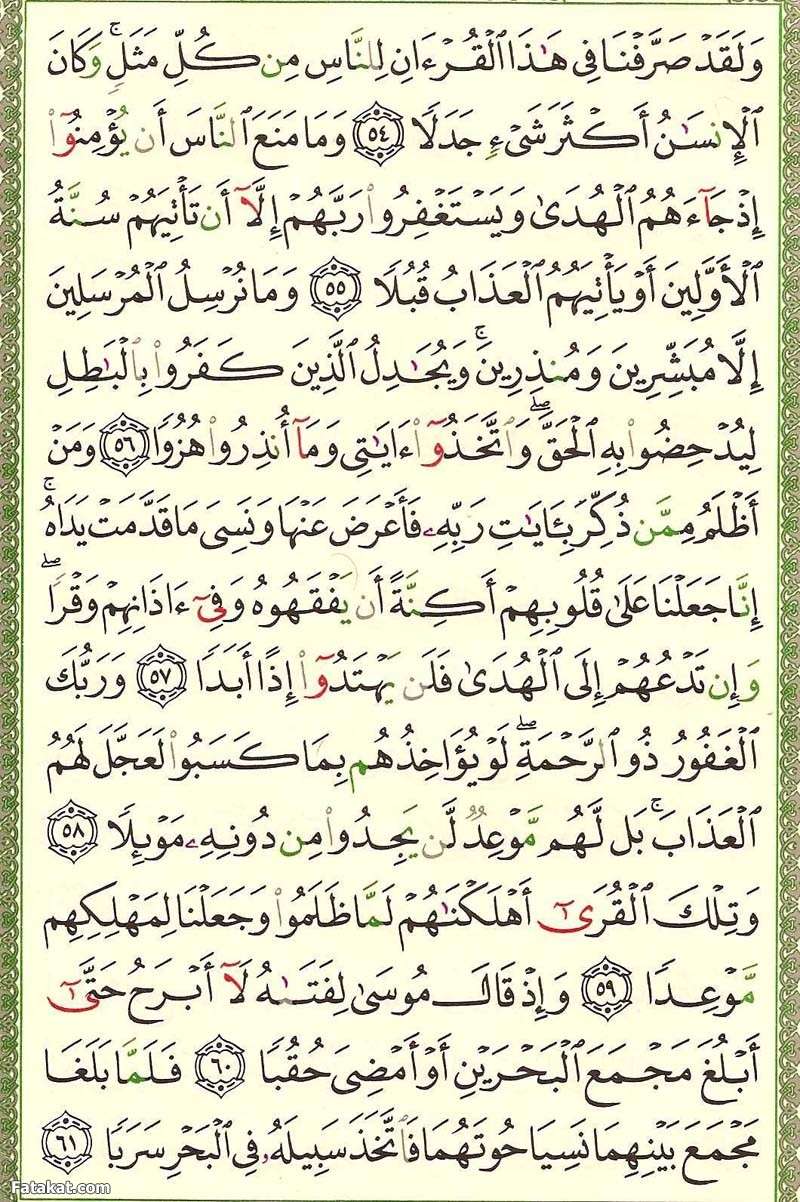 وَلَقَدْ صَرَّفْنَا فِى هَٰذَا ٱلْقُرْءَانِ لِلنَّاسِ مِن كُلِّ مَثَلٍ ۚ وَكَانَ
ٱلْإِنسَٰنُ أَكْثَرَ شَىْءٍ جَدَلًا ٥٤ وَمَا مَنَعَ ٱلنَّاسَ أَن يُؤْمِنُوٓا۟
إِذْ جَآءَهُمُ ٱلْهُدَىٰ وَيَسْتَغْفِرُوا۟ رَبَّهُمْ إِلَّآ أَن تَأْتِيَهُمْ سُنَّةُ
ٱلْأَوَّلِينَ أَوْ يَأْتِيَهُمُ ٱلْعَذَابُ قُبُلًا ٥٥ وَمَا نُرْسِلُ ٱلْمُرْسَلِينَ
إِلَّا مُبَشِّرِينَ وَمُنذِرِينَ ۚ وَيُجَٰدِلُ ٱلَّذِينَ كَفَرُوا۟ بِٱلْبَٰطِلِ
لِيُدْحِضُوا۟ بِهِ ٱلْحَقَّ ۖ وَٱتَّخَذُوٓا۟ ءَايَٰتِى وَمَآ أُنذِرُوا۟ هُزُوًا ٥٦ وَمَنْ
أَظْلَمُ مِمَّن ذُكِّرَ بِـَٔايَٰتِ رَبِّهِۦ فَأَعْرَضَ عَنْهَا وَنَسِىَ مَا قَدَّمَتْ يَدَاهُ ۚ
إِنَّا جَعَلْنَا عَلَىٰ قُلُوبِهِمْ أَكِنَّةً أَن يَفْقَهُوهُ وَفِىٓ ءَاذَانِهِمْ وَقْرًا ۖ
وَإِن تَدْعُهُمْ إِلَى ٱلْهُدَىٰ فَلَن يَهْتَدُوٓا۟ إِذًا أَبَدًا ٥٧ وَرَبُّكَ
ٱلْغَفُورُ ذُو ٱلرَّحْمَةِ ۖ لَوْ يُؤَاخِذُهُم بِمَا كَسَبُوا۟ لَعَجَّلَ لَهُمُ
ٱلْعَذَابَ ۚ بَل لَّهُم مَّوْعِدٌ لَّن يَجِدُوا۟ مِن دُونِهِۦ مَوْئِلًا ٥٨
وَتِلْكَ ٱلْقُرَىٰٓ أَهْلَكْنَٰهُمْ لَمَّا ظَلَمُوا۟ وَجَعَلْنَا لِمَهْلِكِهِم
مَّوْعِدًا ٥٩ وَإِذْ قَالَ مُوسَىٰ لِفَتَىٰهُ لَآ أَبْرَحُ حَتَّىٰٓ
أَبْلُغَ مَجْمَعَ ٱلْبَحْرَيْنِ أَوْ أَمْضِىَ حُقُبًا ٦٠ فَلَمَّا بَلَغَا
مَجْمَعَ بَيْنِهِمَا نَسِيَا حُوتَهُمَا فَٱتَّخَذَ سَبِيلَهُۥ فِى ٱلْبَحْرِ سَرَبًا ٦١
Fatakat.com